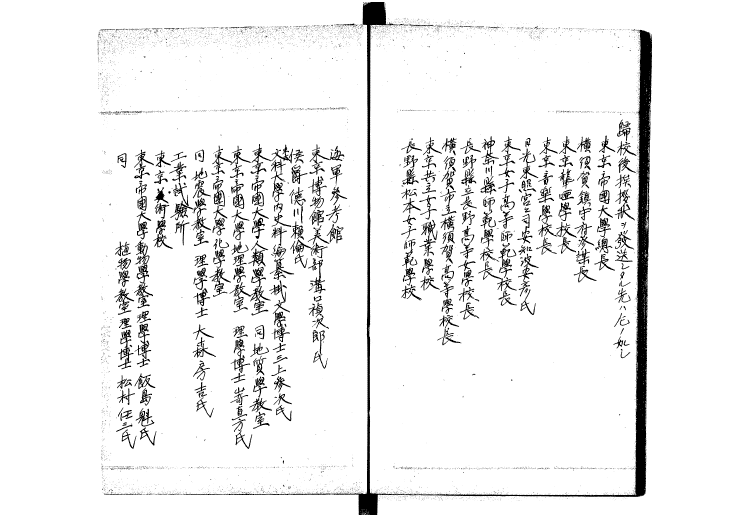 歸校後挨拶状ヲ發送シタル先ハ左ノ如シ
東京帝國大學總長
横須賀鎮守府参謀長
東京聾唖學校長
東京音樂學校長
日光東照宮宮司安知波央彦氏
東京女子高等師範學校長
神奈川縣師範學校長
長野縣立長野高等女學校長
横須賀市立横須賀高等學校長
東京共立女子職業學校
長野縣松本女子師範學校
海軍参考館
東京博物館美術部 溝口禎次郎氏
侯爵徳川頼倫氏
文科大學内史料編纂掛文學博士三上参次氏
東京帝國大學人類學教室 同地質學教室
東京帝國大學地理學教室 理學博士山崎直方氏
東京帝國大學化學教室
同地震學教室 理學博士 大森房吉氏
工業試驗所
東京美術學校
東京帝國大學動物學教室理學博士 飯島魁氏
同 植物學教室理學博士 松村任三氏